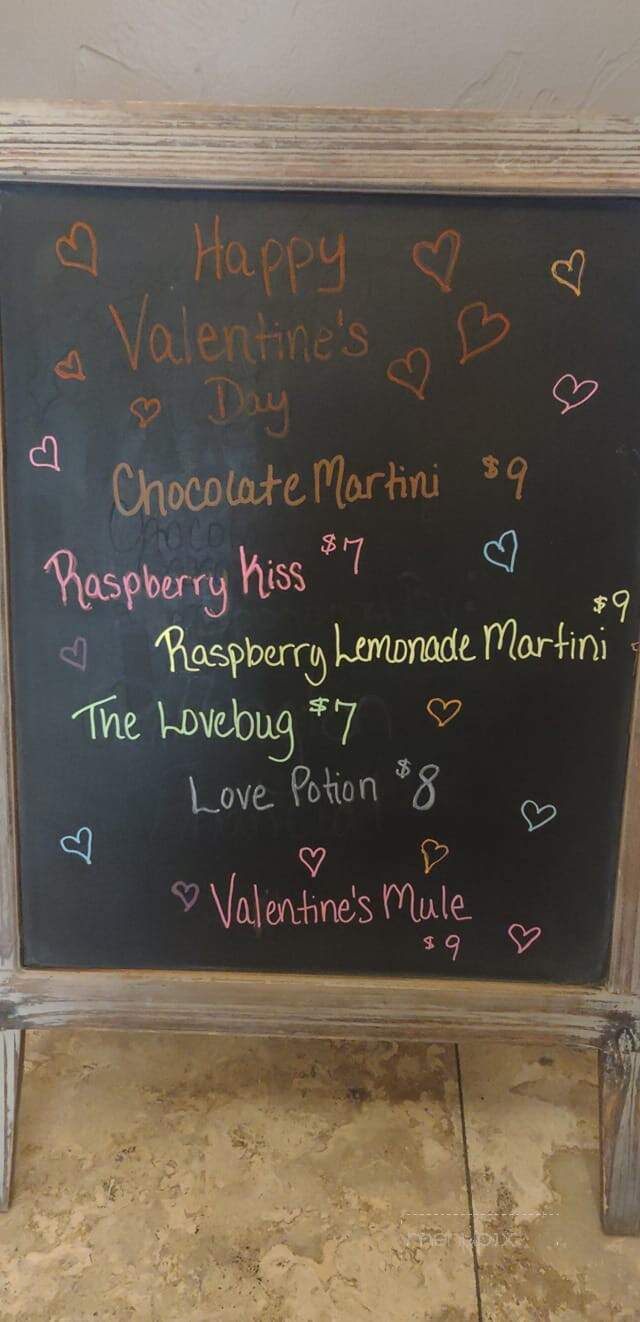 Happy
Valentine's
Day
Chocolate Martini $9
Raspberry Kiss $7
$9
Raspberry Lemonade Martini
The Lovebug $7
Love Potion $8
Valentine's Mule
$9
menupix